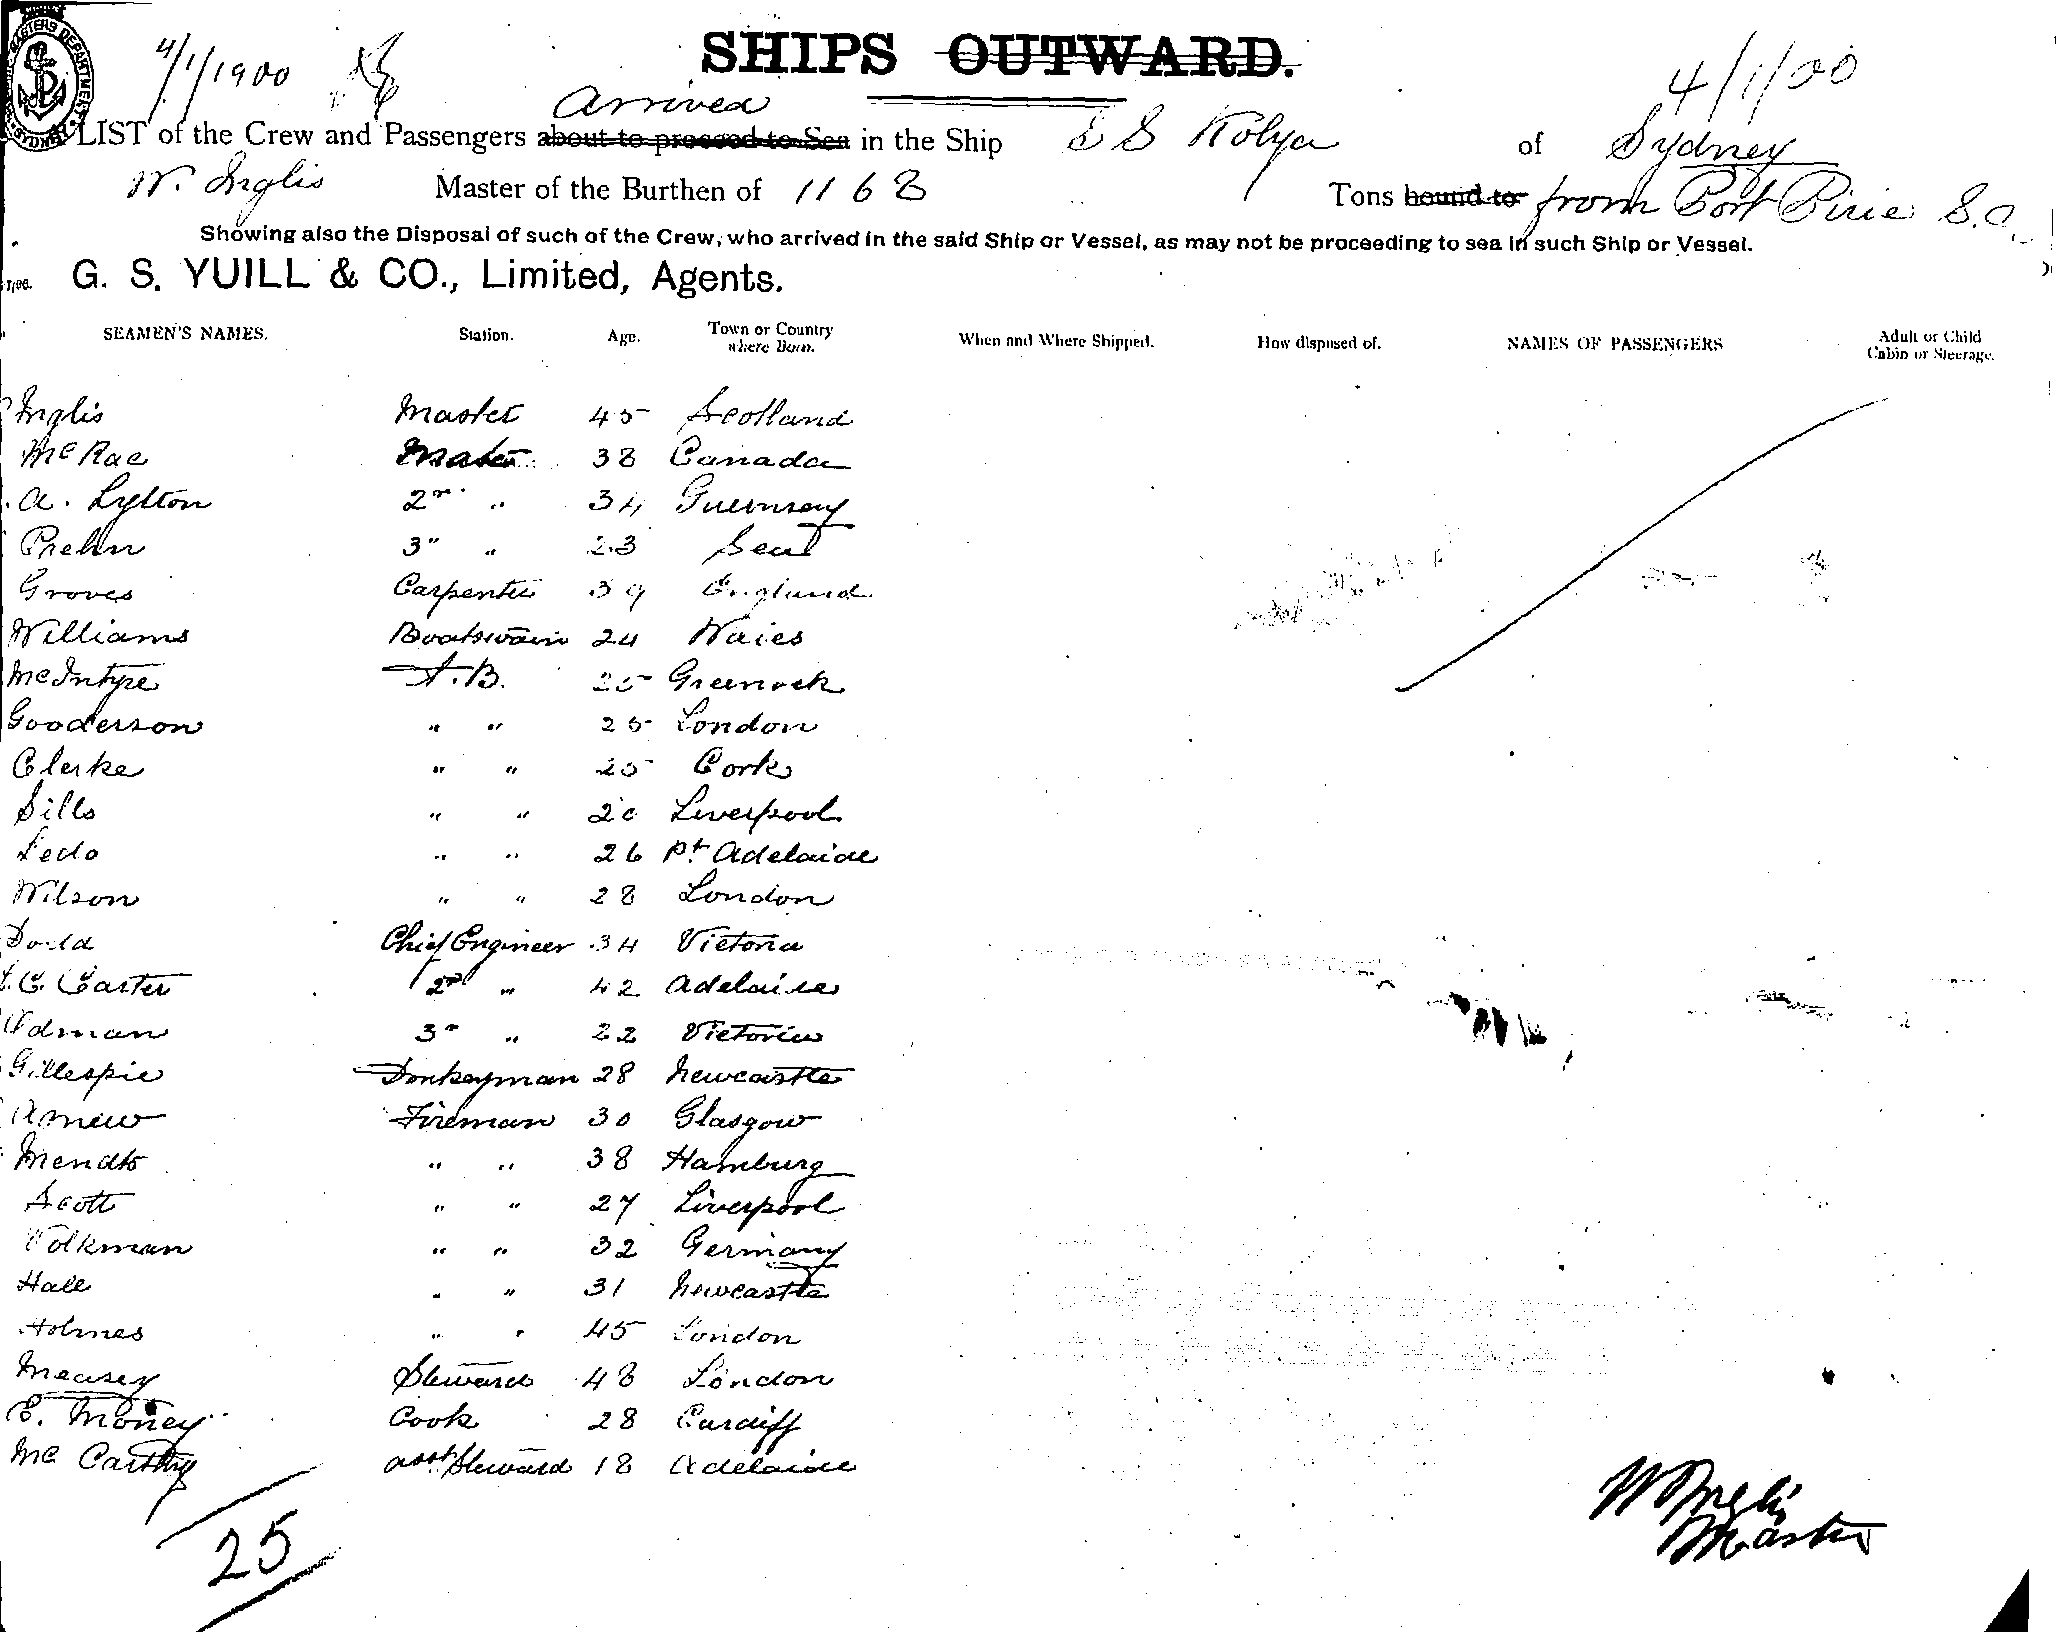 4/1/1900
SHIPS OUTWARD.
4/1/00
Arrived
LIST of the Crew and Passengers about to proceed to Sea in the Ship S S Kolya of Sydney
W. Inglis Master of the Burthen of 1168 Tons bound to from Port Pirie S.A.
Showing also the Disposal of such of the Crew, who arrived in the said Ship or Vessel, as may not be proceeding to sea in such Ship or Vessel.
G. S. YUILL & CO., Limited, Agents.
SEAMEN'S NAMES. Station. Age. Town or Country where Born. When and Where Shipped. How disposed of. NAMES OF PASSENGERS Adult or Child Cabin or Steerage.
Inglis Master 45 Scotland
McRae Mate 38 Canada
A. Lylton 2nd " 34 Guernsey
Prehn 3" " 23
Groves Carpenter 39 England
Williams Boatswain 24 Wales
McIntyre A.B. 25 Greenock
Gooderson " " 25 London
Clerke " " 25 Cork
Sills " " 20 Liverpool
Ledo " " 26 Pt Adelaide
Wilson " " 28 London
Dodd Chief Engineer 34 Victoria
C. Carter 2nd " 42 Adelaide
3rd " 22 Victoria
Gillespie Donkeyman 28 Newcastle
Fireman 30 Glasgow
" " 38 Hamburg
Scott " " 27 Liverpool
Volkman " " 32 Germany
Hall " " 31 Newcastle
Holmes " " 45 London
Measey Steward 48 London
E. Money Cook 28 Cardiff
McCarthy asst Steward 18 Adelaide
25
W Inglis
Master